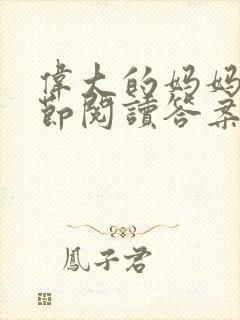 偉大的妈妈
節閱讀答案
鳳子君